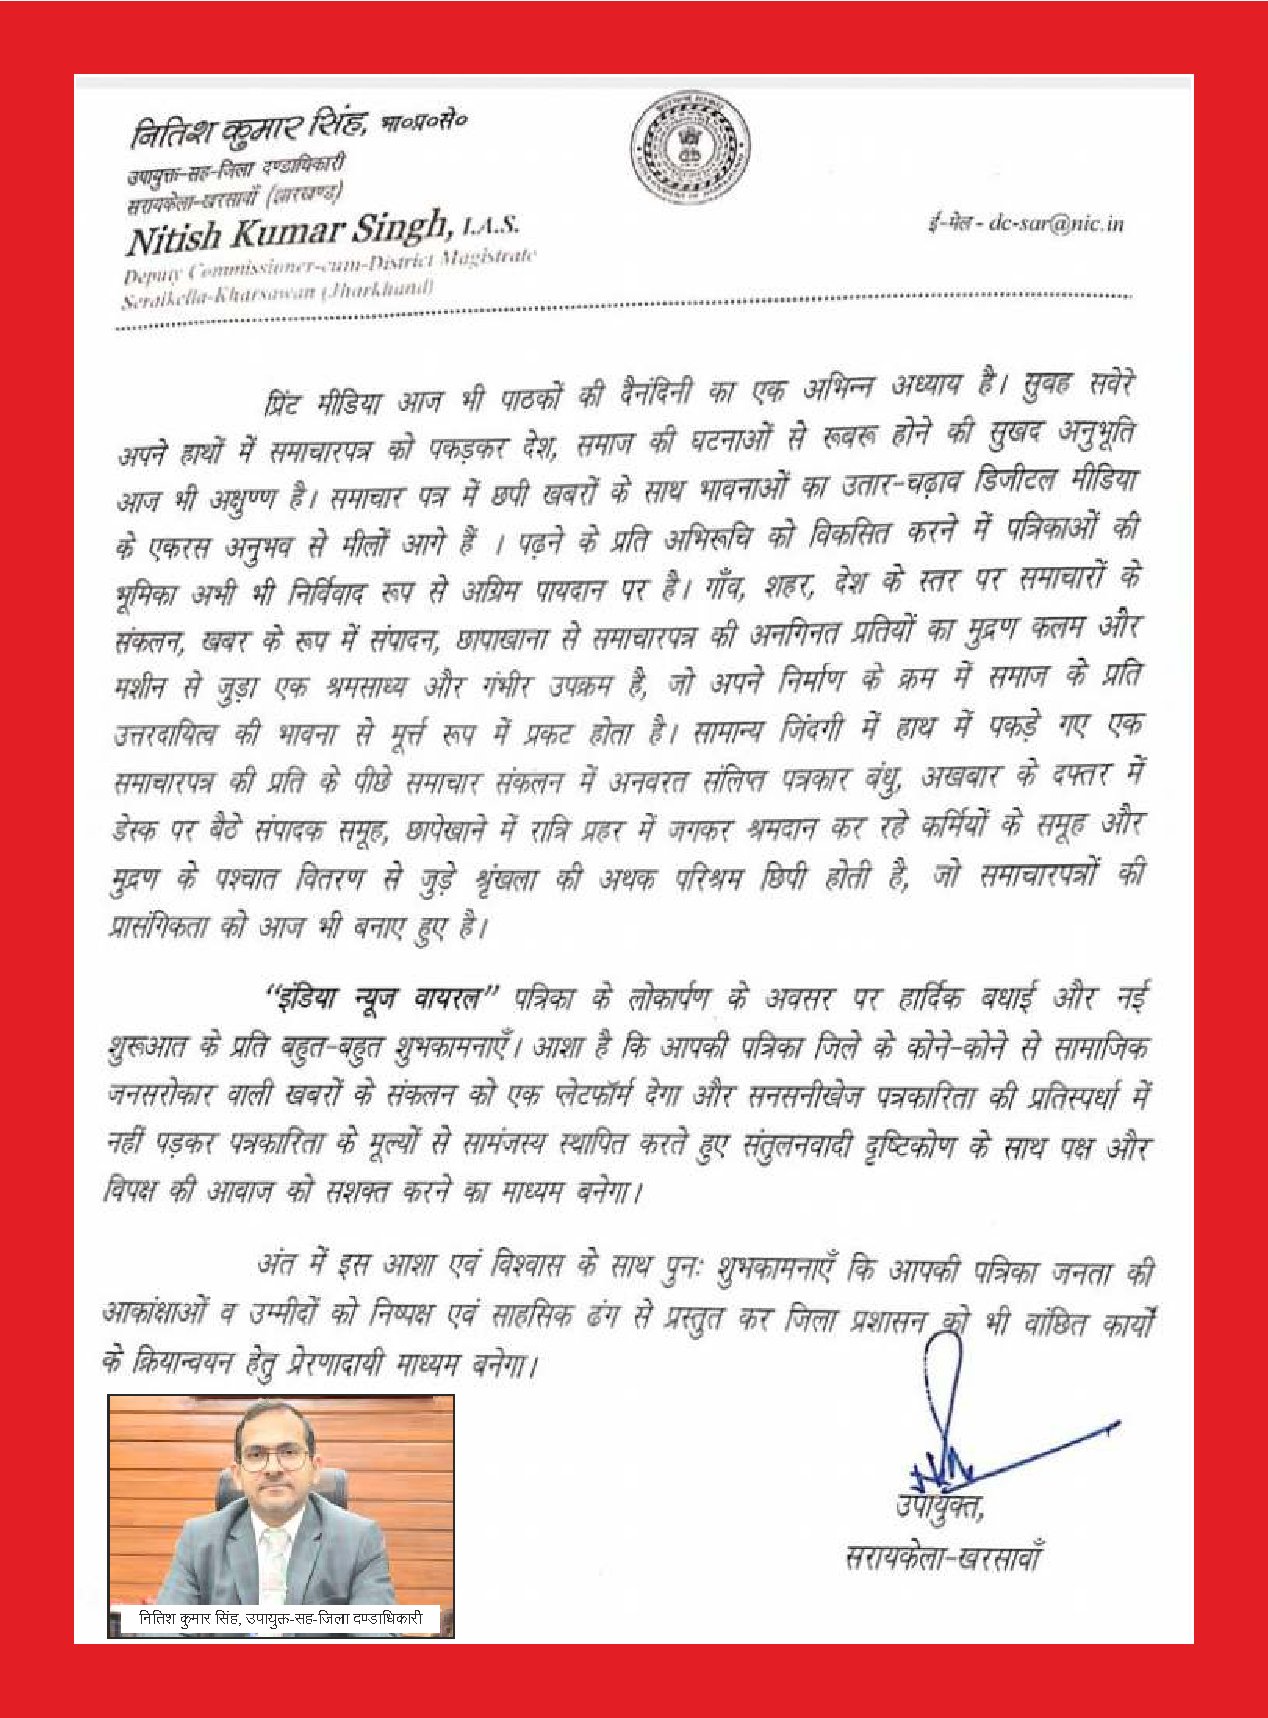 नितिश कुमार सिंह, भा०प्र०से०
उपायुक्त-सह-जिला दण्डाधिकारी
सरायकेला-खरसावाँ (झारखण्ड)
Nitish Kumar Singh, I.A.S.
Deputy Commissioner-cum-District Magistrate
Seraikella-Kharsawan (Jharkhand)
ई-मेल - dc-sar@nic.in
प्रिंट मीडिया आज भी पाठकों की दैनंदिनी का एक अभिन्न अध्याय है। सुवह सवेरे
अपने हाथों में समाचारपत्र को पकड़कर देश, समाज की घटनाओं से रूबरू होने की सुखद अनुभूति
आज भी अक्षुण्ण है। समाचार पत्र में छपी खबरों के साथ भावनाओं का उतार-चढ़ाव डिजीटल मीडिया
के एकरस अनुभव से मीलों आगे हैं । पढ़ने के प्रति अभिरूचि को विकसित करने में पत्रिकाओं की
भूमिका अभी भी निर्विवाद रूप से अग्रिम पायदान पर है। गाँव, शहर, देश के स्तर पर समाचारों के
संकलन, खबर के रूप में संपादन, छापाखाना से समाचारपत्र की अनगिनत प्रतियों का मुद्रण कलम और
मशीन से जुड़ा एक श्रमसाध्य और गंभीर उपक्रम है, जो अपने निर्माण के क्रम में समाज के प्रति
उत्तरदायित्व की भावना से मूर्त्त रूप में प्रकट होता है। सामान्य जिंदगी में हाथ में पकड़े गए एक
समाचारपत्र की प्रति के पीछे समाचार संकलन में अनवरत संलिप्त पत्रकार बंधु, अखबार के दफ्तर में
डेस्क पर बैठे संपादक समूह, छापेखाने में रात्रि प्रहर में जगकर श्रमदान कर रहे कर्मियों के समूह और
मुद्रण के पश्चात वितरण से जुड़े श्रृंखला की अथक परिश्रम छिपी होती है, जो समाचारपत्रों की
प्रासंगिकता को आज भी बनाए हुए है।
“इंडिया न्यूज वायरल” पत्रिका के लोकार्पण के अवसर पर हार्दिक बधाई और नई
शुरूआत के प्रति बहुत-बहुत शुभकामनाएँ। आशा है कि आपकी पत्रिका जिले के कोने-कोने से सामाजिक
जनसरोकार वाली खबरों के संकलन को एक प्लेटफॉर्म देगा और सनसनीखेज पत्रकारिता की प्रतिस्पर्धा में
नहीं पड़कर पत्रकारिता के मूल्यों से सामंजस्य स्थापित करते हुए संतुलनवादी दृष्टिकोण के साथ पक्ष और
विपक्ष की आवाज को सशक्त करने का माध्यम बनेगा।
अंत में इस आशा एवं विश्वास के साथ पुनः शुभकामनाएँ कि आपकी पत्रिका जनता की
आकांक्षाओं व उम्मीदों को निष्पक्ष एवं साहसिक ढंग से प्रस्तुत कर जिला प्रशासन को भी वांछित कार्यों
के क्रियान्वयन हेतु प्रेरणादायी माध्यम बनेगा।
उपायुक्त,
सरायकेला-खरसावाँ
नितिश कुमार सिंह, उपायुक्त-सह-जिला दण्डाधिकारी